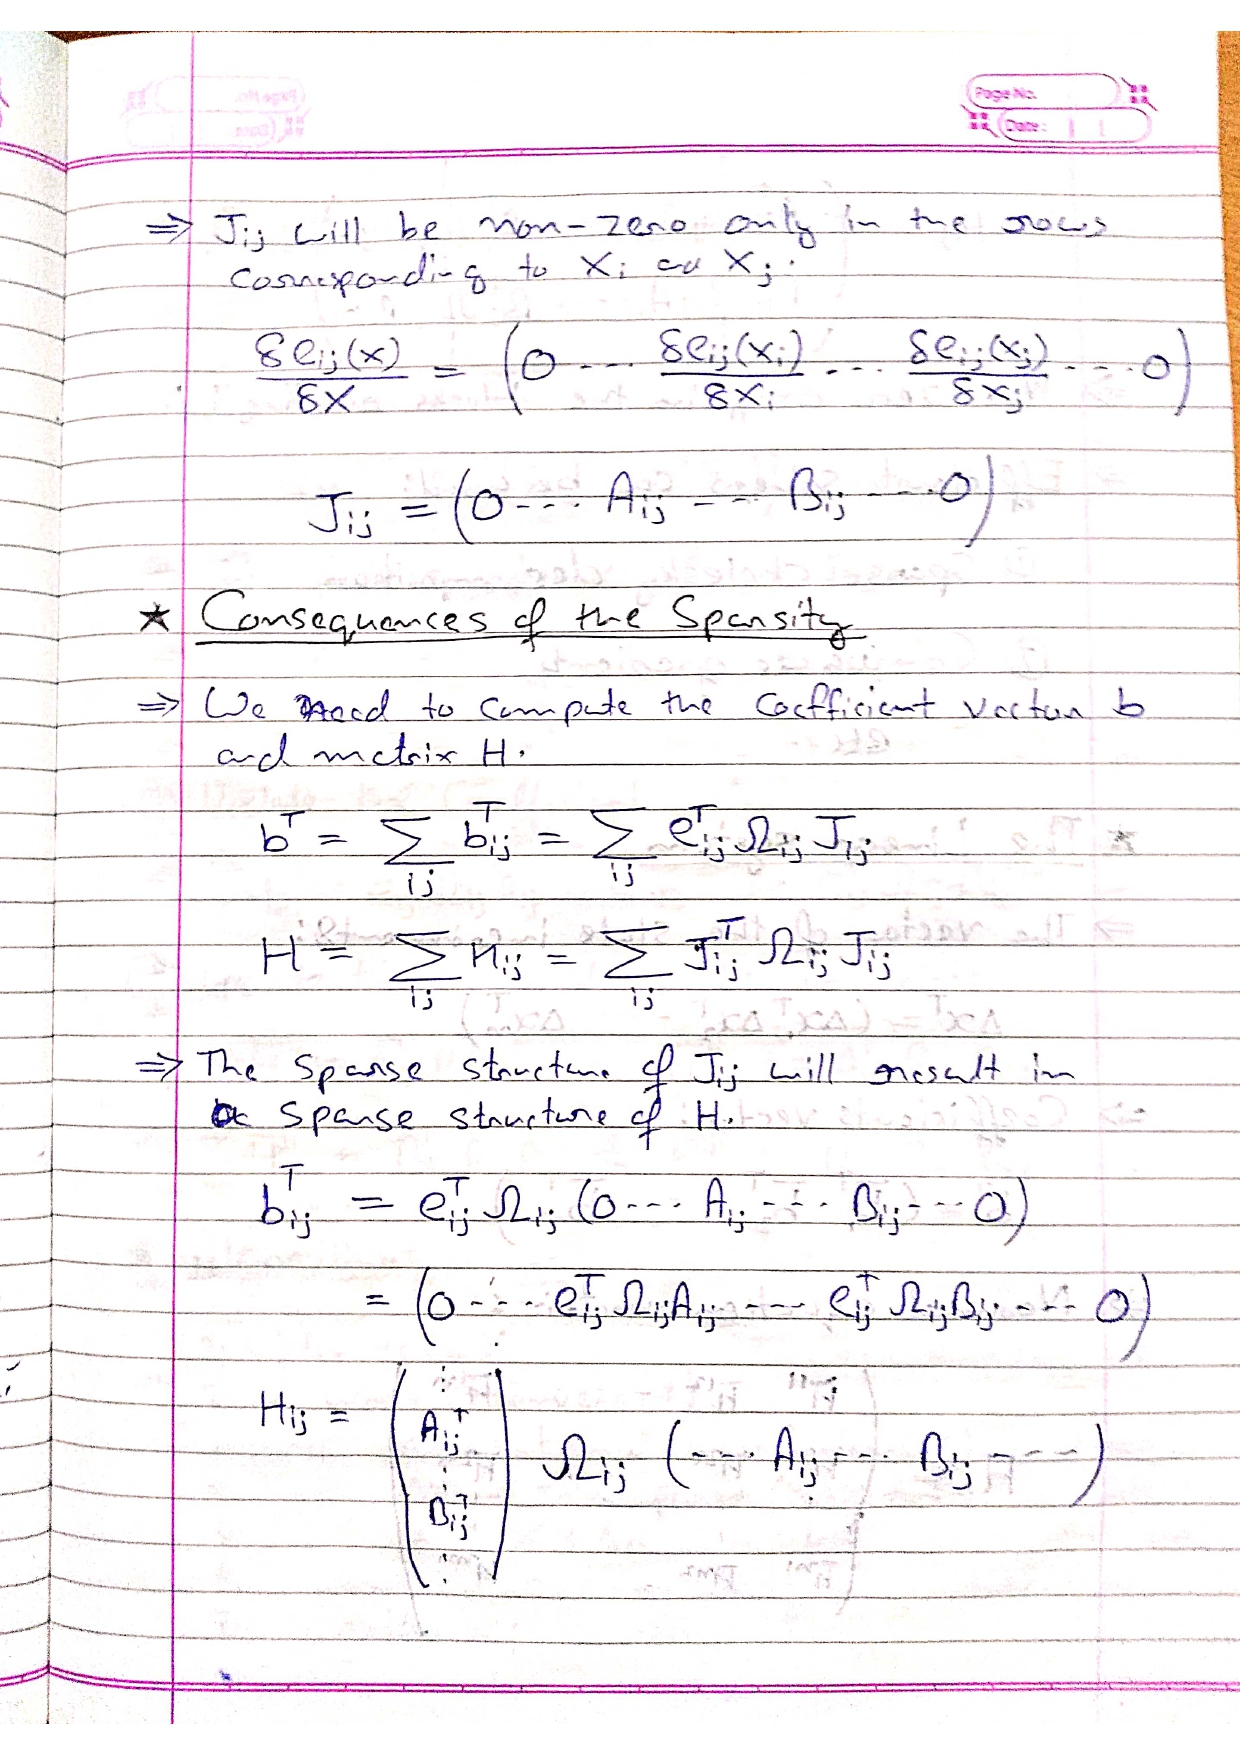 Page No.
Date:
⇒ Jij will be non-zero only in the rows
corresponding to Xi and Xj.
δeij(x)/δX = (0 --- δeij(xi)/δXi --- δeij(xj)/δxj --- 0)
Jij = (0 --- Aij --- Bij --- 0)
★ Consequences of the Sparsity
⇒ We need to compute the coefficient vector b
and matrix H.
b^T = Σ_ij b^T_ij = Σ_ij e^T_ij Ωij Jij
H = Σ_ij Hij = Σ_ij J^T_ij Ωij Jij
⇒ The sparse structure of Jij will result in
a sparse structure of H.
b^T_ij = e^T_ij Ωij (0 --- Aij --- Bij --- 0)
= (0 --- e^T_ij Ωij Aij --- e^T_ij Ωij Bij --- 0)
Hij = (⋮ A^T_ij ⋮ B^T_ij ⋮) Ωij (--- Aij --- Bij ---)